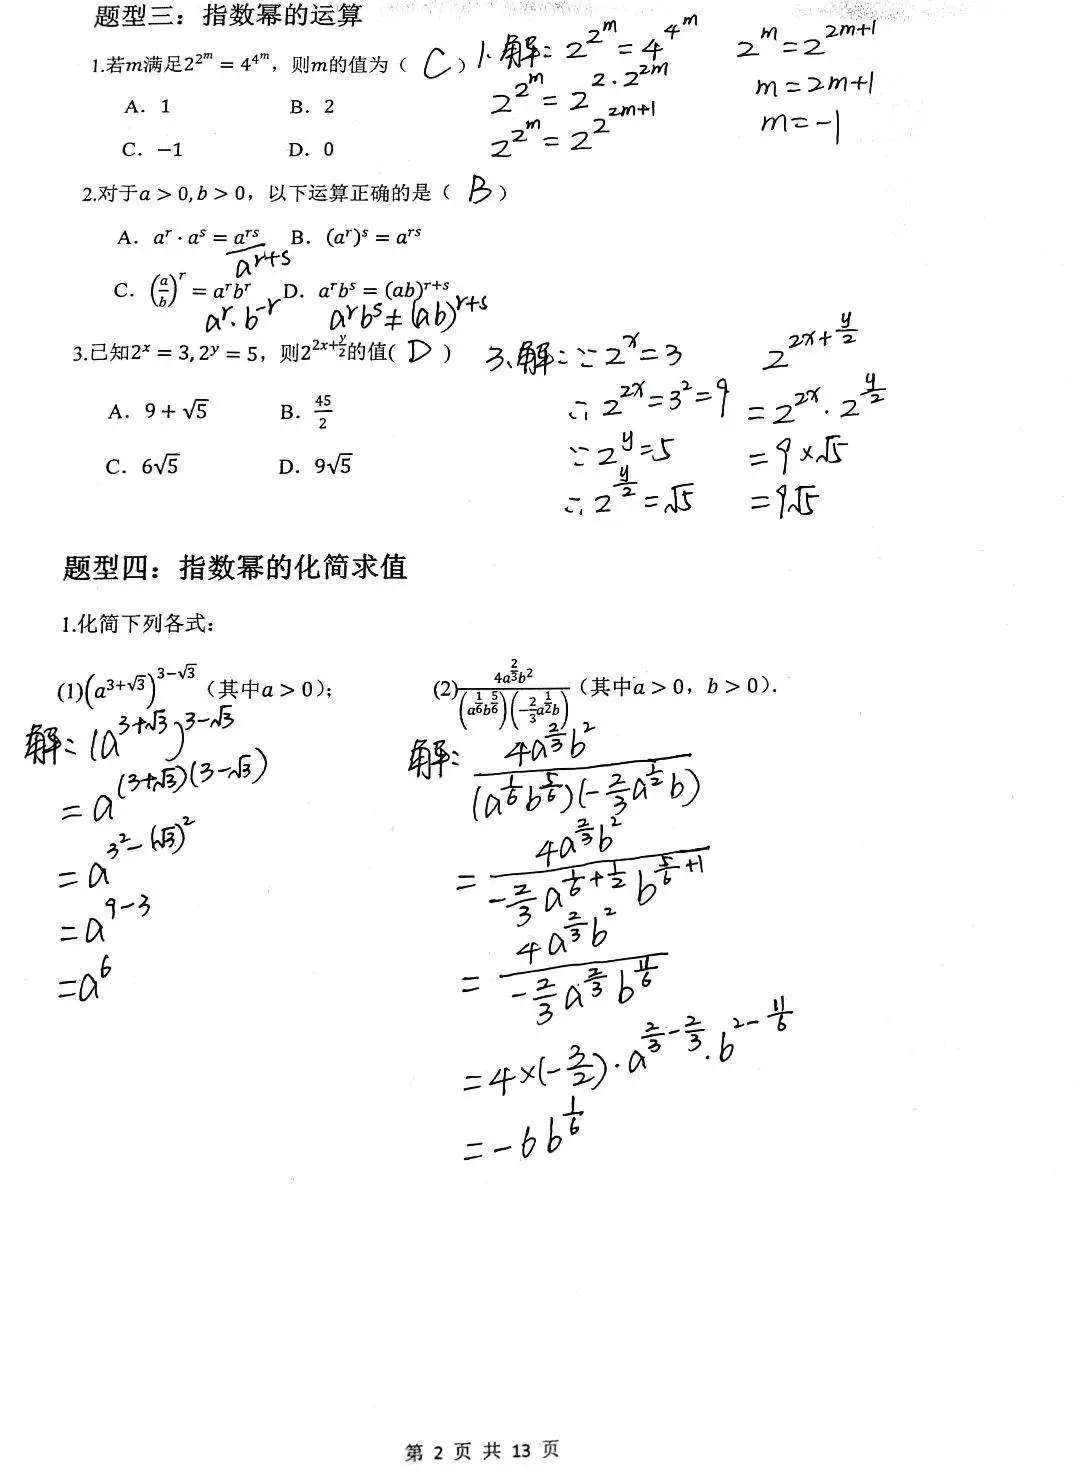 题型三：指数幂的运算
1.若m满足2^{2^m} = 4^{4^m}，则m的值为（ C ）
A．1 B．2
C．−1 D．0
1.解：2^{2^m} = 4^{4^m}
2^{2^m} = 2^{2·2^{2m}}
2^{2^m} = 2^{2^{2m+1}}
2^m = 2^{2m+1}
m = 2m+1
m = −1
2.对于a > 0, b > 0，以下运算正确的是（ B ）
A．a^r · a^s = a^{rs} B．(a^r)^s = a^{rs}
a^{r+s}
C．(a/b)^r = a^r b^r D．a^r b^s = (ab)^{r+s}
a^r · b^{-r} a^r b^s ≠ (ab)^{r+s}
3.已知2^x = 3, 2^y = 5，则2^{2x+y/2}的值( D )
A．9 + √5 B．45/2
C．6√5 D．9√5
3.解：∵ 2^x = 3
∴ 2^{2x} = 3^2 = 9
∵ 2^y = 5
∴ 2^{y/2} = √5
2^{2x+y/2}
= 2^{2x} · 2^{y/2}
= 9 × √5
= 9√5
题型四：指数幂的化简求值
1.化简下列各式：
(1)(a^{3+√3})^{3−√3}（其中a > 0）;
解：(a^{3+√3})^{3−√3}
= a^{(3+√3)(3−√3)}
= a^{3^2−(√3)^2}
= a^{9−3}
= a^6
(2) 4a^{2/3}b^2 / (a^{1/6}b^{5/6})(−2/3 a^{1/2}b)（其中a > 0，b > 0）.
解：4a^{2/3}b^2 / (a^{1/6}b^{5/6})(−2/3 a^{1/2}b)
= 4a^{2/3}b^2 / −2/3 a^{1/6+1/2} b^{5/6+1}
= 4a^{2/3}b^2 / −2/3 a^{2/3} b^{11/6}
= 4×(−3/2)·a^{2/3−2/3}·b^{2−11/6}
= −6b^{1/6}
第 2 页 共 13 页